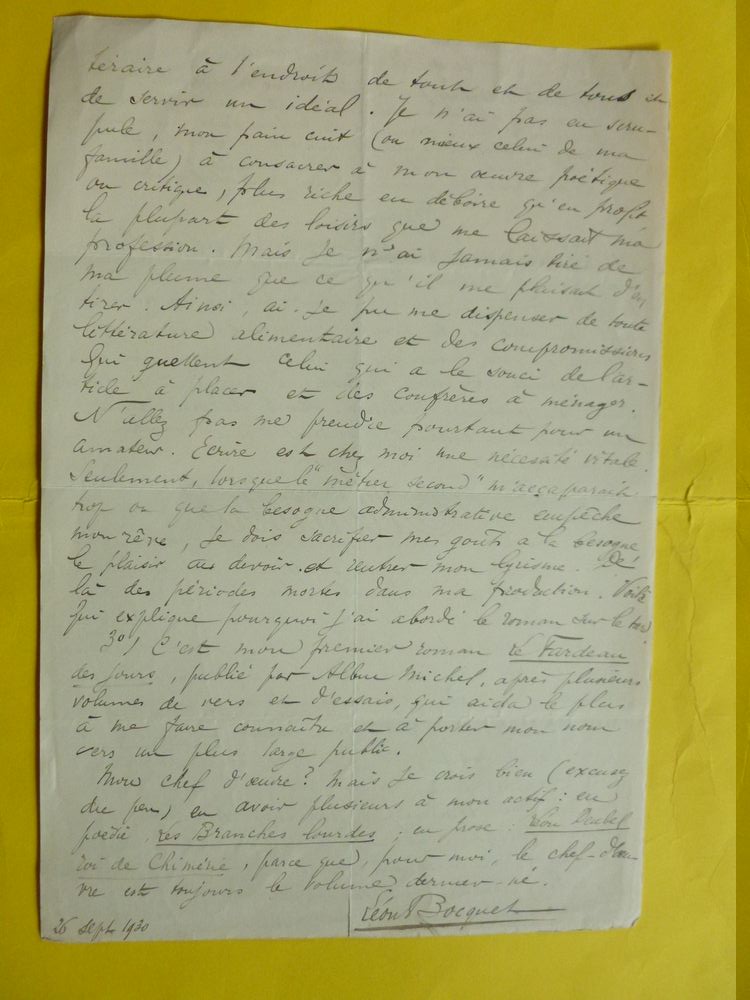 téraire à l'endroit de tout et de tous et
de servir un idéal. Je n'ai pas eu scru-
pule, mon pain cuit (ou mieux celui de ma
famille) à consacrer à mon œuvre poétique
ou critique, plus riche en déboire qu'en profit
la plupart des loisirs que me laissait ma
profession. Mais je n'ai jamais tiré de
ma plume que ce qu'il me plaisait d'en
tirer. Ainsi, ai-je pu me dispenser de toute
littérature alimentaire et des compromissions
qui guettent celui qui a le souci de l'ar-
ticle à placer et des confrères à ménager.
N'allez pas me prendre pourtant pour un
amateur. Ecrire est chez moi une nécessité vitale.
Seulement, lorsque le "métier second" m'accaparait
trop ou que la besogne administrative empêche
mon rêve, je dois sacrifier mes goûts a la besogne
le plaisir au devoir et rentrer mon lyrisme. De
là des périodes mortes dans ma production. Voilà
qui explique pourquoi j'ai abordé le roman sur le tard
3°/ C'est mon premier roman Le Fardeau
des jours, publié par Albin Michel, après plusieurs
volumes de vers et d'essais, qui aida le plus
à me faire connaître et à porter mon nom
vers un plus large public.
Mon chef d'œuvre? Mais je crois bien (excusez
du peu) en avoir plusieurs à mon actif: en
poésie, Les Branches lourdes; en prose: Léon Deubel
roi de Chimérie, parce que, pour moi, le chef-d'œu-
vre est toujours le volume dernier-né.
Léon Bocquet
26 sept 1930